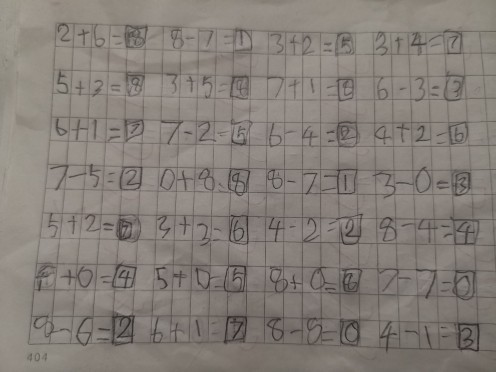 2+6=8 8-7=1 3+2=5 3+4=7
5+3=8 3+5=8 7+1=8 6-3=3
6+1=7 7-2=5 6-4=2 4+2=6
7-5=2 0+8=8 8-7=1 3-0=3
5+2=7 3+3=6 4-2=2 8-4=4
4+0=4 5+0=5 8+0=8 7-7=0
8-6=2 6+1=7 8-8=0 4-1=3
404